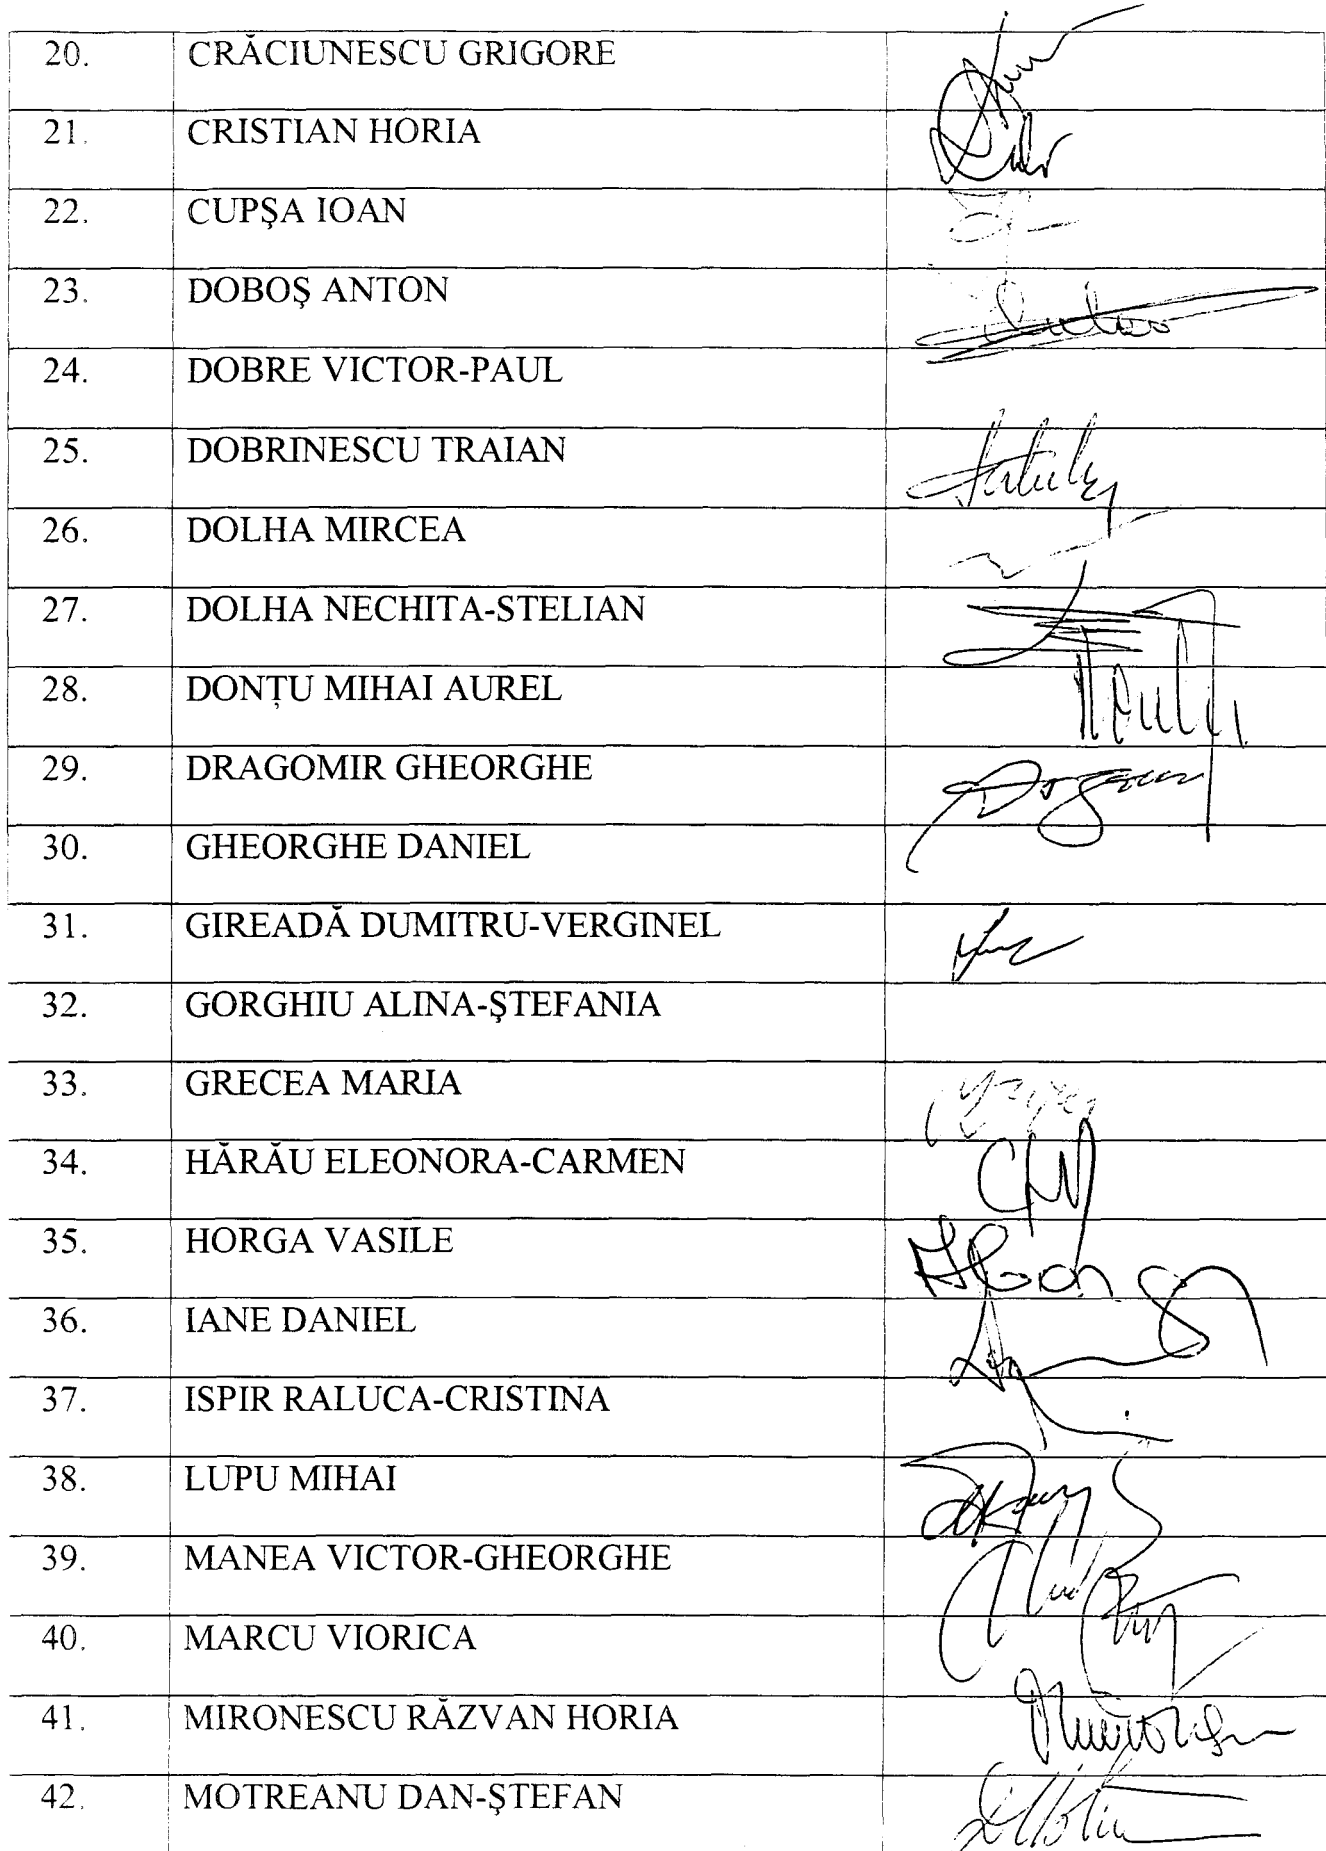 20. CRĂCIUNESCU GRIGORE
21. CRISTIAN HORIA
22. CUPŞA IOAN
23. DOBOŞ ANTON
24. DOBRE VICTOR-PAUL
25. DOBRINESCU TRAIAN
26. DOLHA MIRCEA
27. DOLHA NECHITA-STELIAN
28. DONȚU MIHAI AUREL
29. DRAGOMIR GHEORGHE
30. GHEORGHE DANIEL
31. GIREADĂ DUMITRU-VERGINEL
32. GORGHIU ALINA-ŞTEFANIA
33. GRECEA MARIA
34. HĂRĂU ELEONORA-CARMEN
35. HORGA VASILE
36. IANE DANIEL
37. ISPIR RALUCA-CRISTINA
38. LUPU MIHAI
39. MANEA VICTOR-GHEORGHE
40. MARCU VIORICA
41. MIRONESCU RĂZVAN HORIA
42. MOTREANU DAN-ŞTEFAN